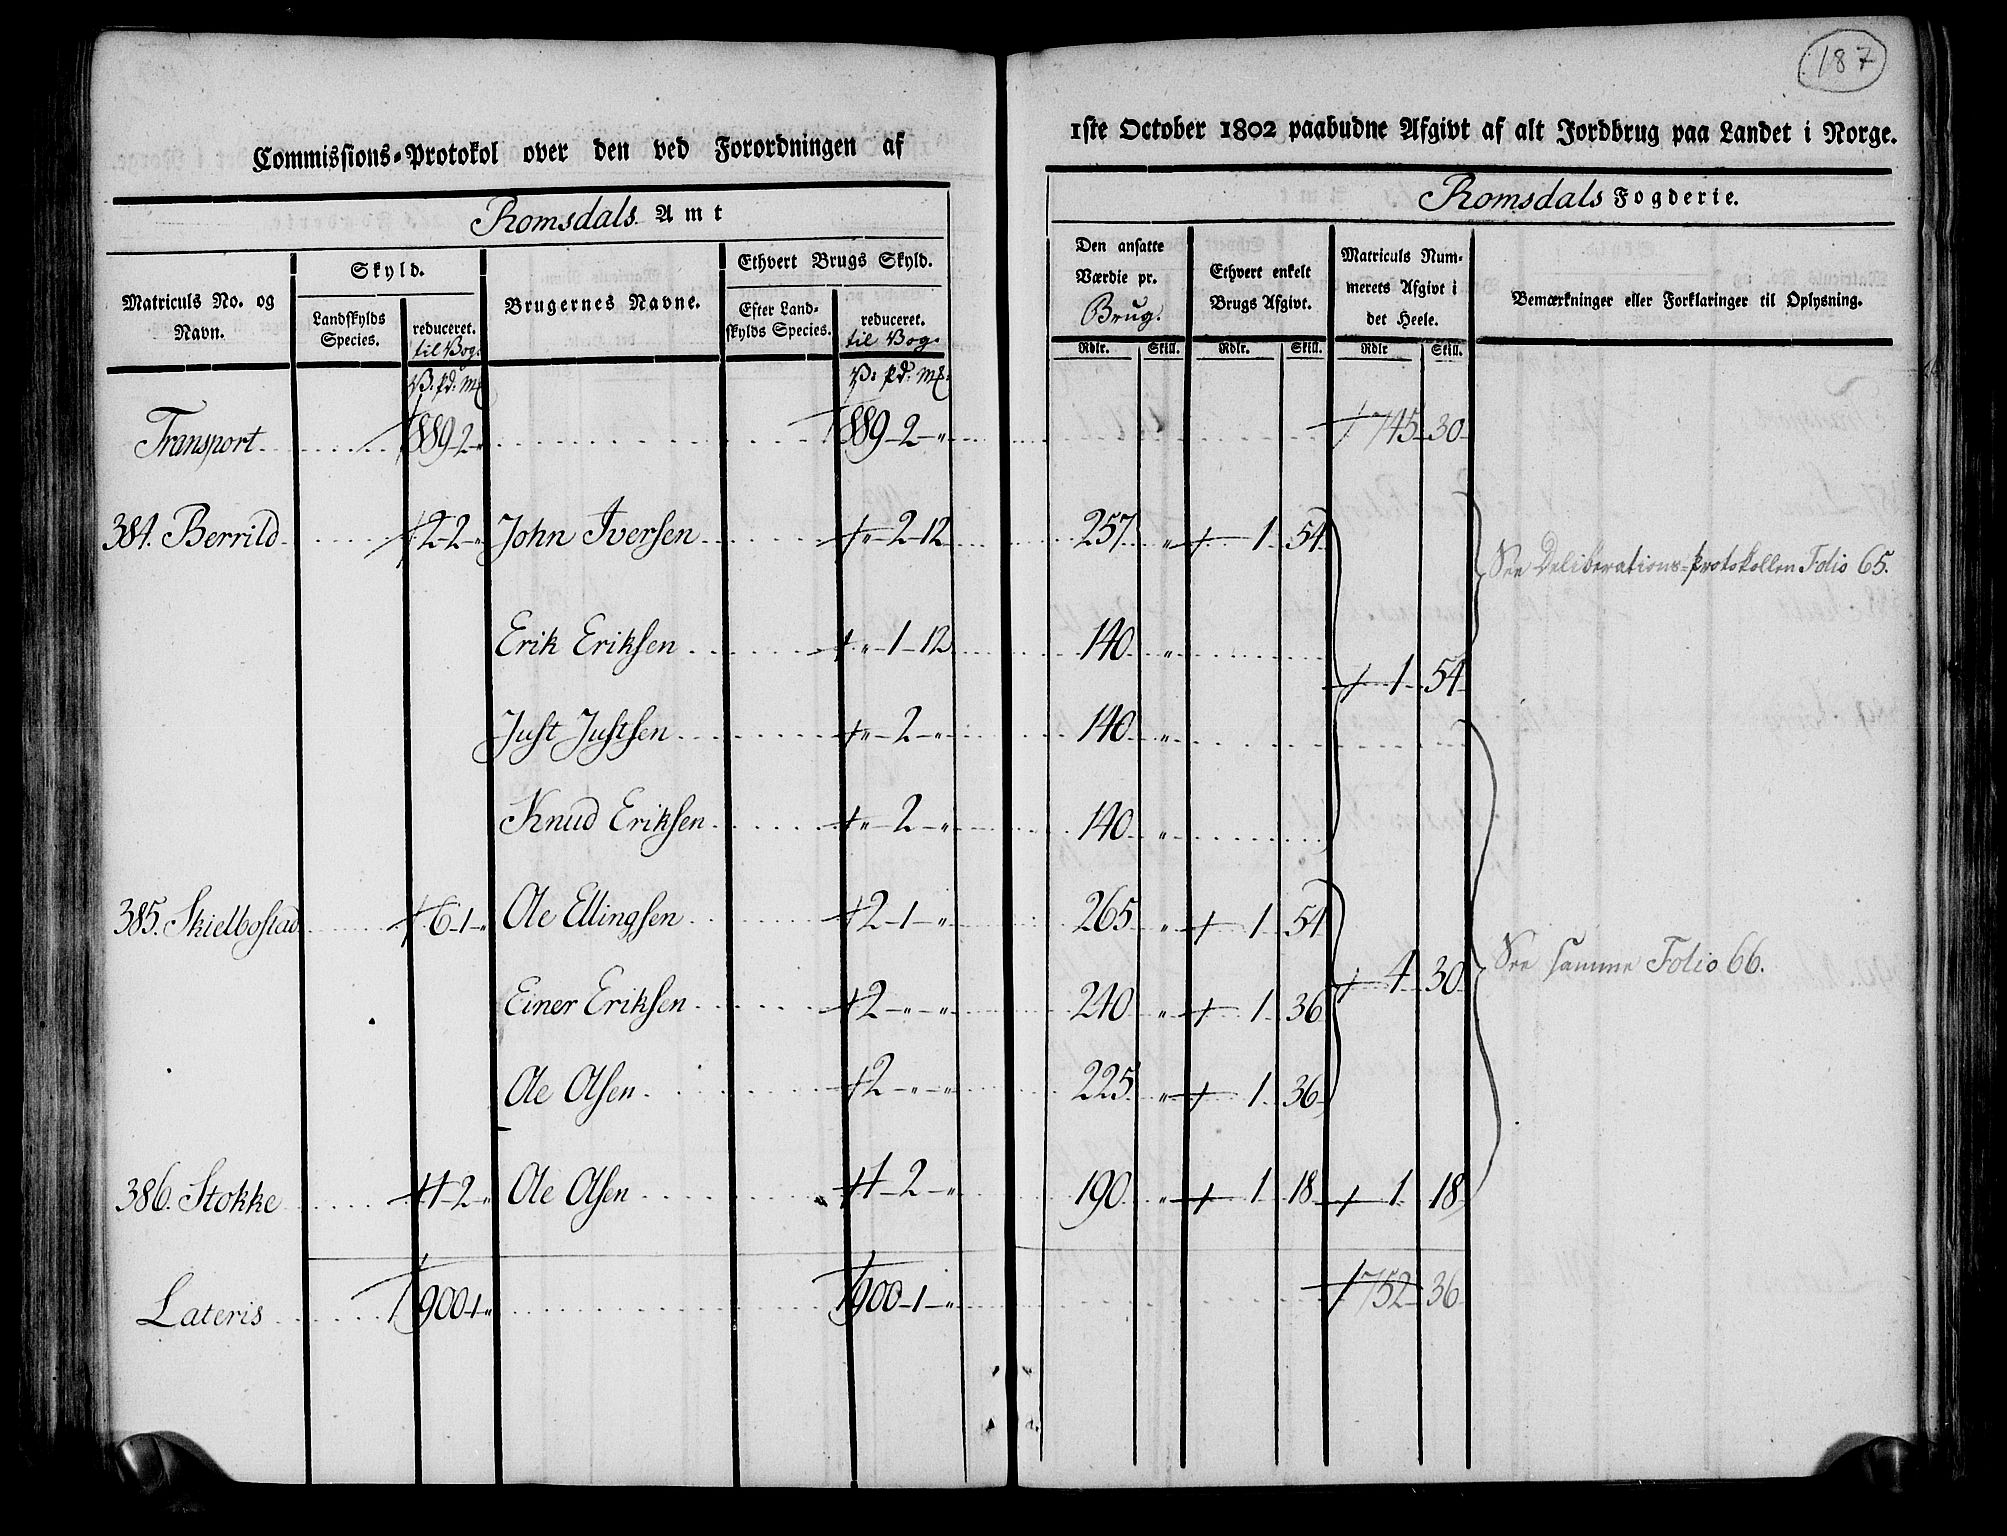 187
Commissions-Protokol over den ved Forordningen af
1ste October 1802 paabudne Afgivt af alt Jordbrug paa Landet i Norge.
Romsdals Amt
Romsdals Fogderie.
Matriculs No. og Navn.
Skyld.
Landskylds Species.
reduceret. til Vog.
Brugernes Navne.
Ethvert Brugs Skyld.
Efter Landskylds Species.
reduceret. til Vog.
Den ansatte Værdie pr. Brug.
Ethvert enkelt Brugs Afgivt.
Matriculs Nummerets Afgivt i det Heele.
Bemærkninger eller Forklaringer til Oplysning.
Rdlr. Skill. Rdlr. Skill. Rdlr Skill.
V: pd: mk V: pd: mk:
Transport 889-2-" 889-2-" 1745-30
384. Berrild 2-2-" John Iversen "-2-12 257 " 1 54 See Deliberations-protokollen Folio 65.
Erik Eriksen "-1-12 140 "
1-54
Just Justsen "-2-" 140 "
Knud Eriksen "-2-" 140 "
385. Skielbostad 6-1-" Ole Ellingsen 2-1-" 265 " 1 54
4-30 See samme Folio 66.
Einer Eriksen 2-"-" 240 " 1 36
Ole Olsen 2-"-" 225 " 1 36
386. Stokke 1-2-" Ole Olsen 1-2-" 190 " 1 18 1 18
Lateris 900-1-" 900-1-" 1752-36